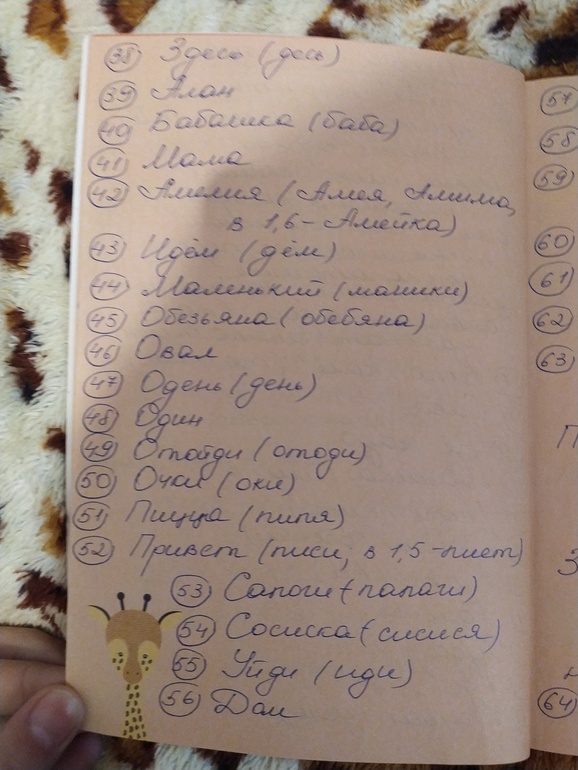 38 Здесь (десь)
39 Алан
40 Бабашка (баба)
41 Мама
42 Амелия (Амея, Амима,
в 1,6 - Амейка)
43 Идём (дём)
44 Маленький (масики)
45 Обезьяна (обебяна)
46 Овал
47 Одень (день)
48 Один
49 Отойди (отоди)
50 Очки (оки)
51 Пицца (пипя)
52 Привет (писи, в 1,5 - пиет)
53 Сапоги (папаги)
54 Сосиска (сисися)
55 Уйди (иди)
56 Дом
57
58
59
60
61
62
63
П
З
64